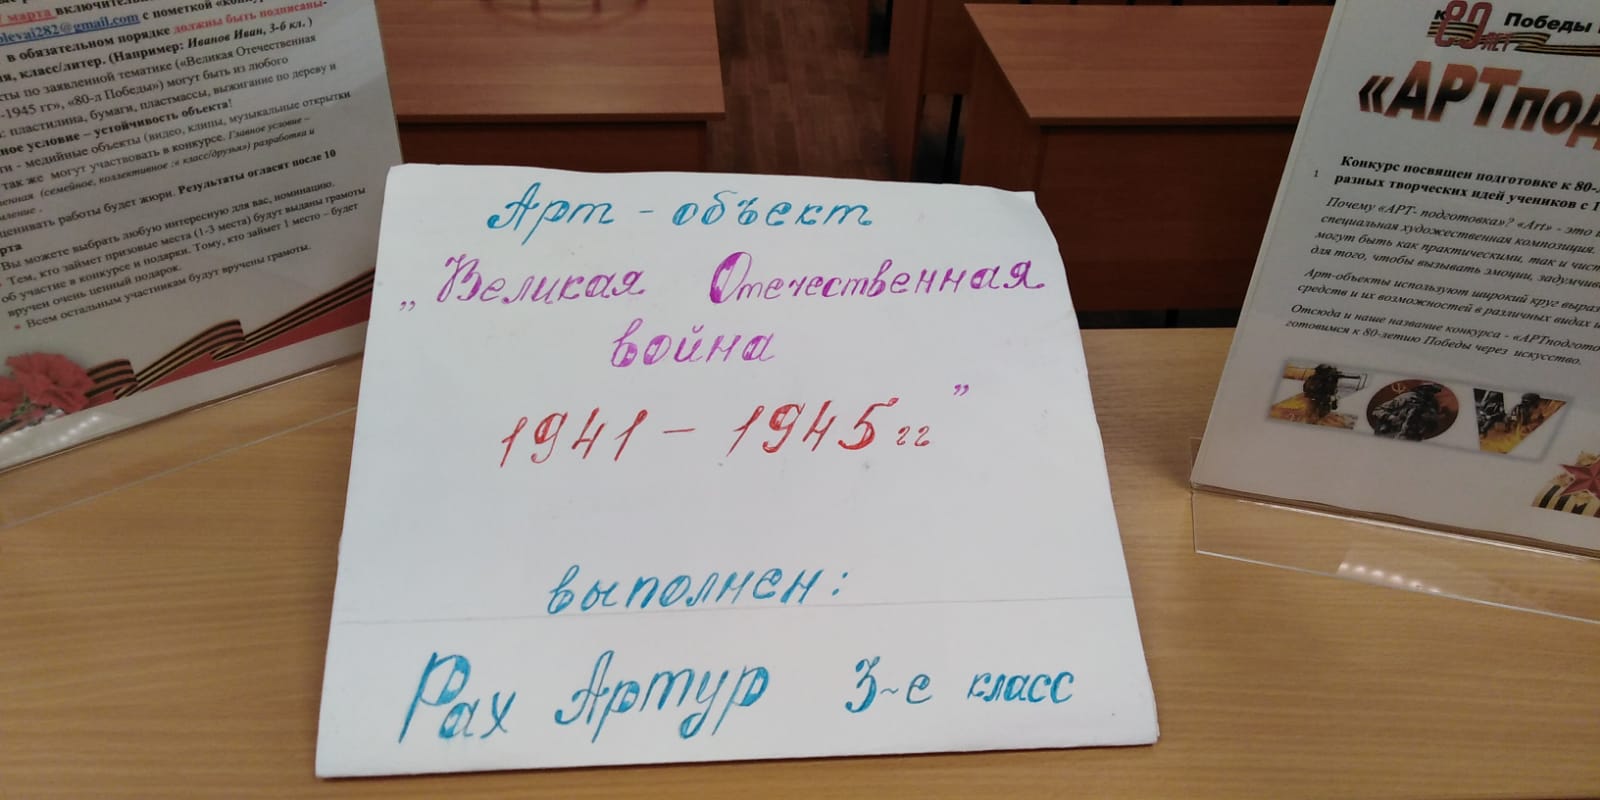 7 марта включительно
olevai282@gmail.com с пометкой «конку
в обязательном порядке должны быть подписаны-
я, класс/литер. (Например: Иванов Иван, 3-б кл. )
ты по заявленной тематике («Великая Отечественная
-1945 гг», «80-л Победы») могут быть из любого
: пластилина, бумаги, пластмассы, выжигание по дереву и
ное условие – устойчивость объекта!
ти - медийные объекты (видео, клипы, музыкальные открытки
так же могут участвовать в конкурсе. Главное условие –
венная (семейное, коллективное :в класс/друзья») разработка и
мление .
ценивать работы будет жюри. Результаты огласят после 10
рта
Вы можете выбрать любую интересную для вас, номинацию.
Тем, кто займет призовые места (1-3 место) будут выданы грамоты
об участие в конкурсе и подарки. Тому, кто займет 1 место – будет
вручен очень ценный подарок.
Всем остальным участникам будут вручены грамоты.
Арт - объект
„Великая Отечественная
война
1941 – 1945 гг”
выполнен:
Рах Артур 3-е класс
80 Победы
ЛЕТ
«АРТпод
Конкурс посвящен подготовке к 80-
1 разных творческих идей учеников с 1
Почему «АРТ- подготовка»? «Art» - это
специальная художественная композиция.
могут быть как практическими, так и чист
для того, чтобы вызывать эмоции, задумчив
Арт-объекты используют широкий круг выраз
средств и их возможностей в различных видах и
Отсюда и наше название конкурса - «АРТподгото
готовимся к 80-летию Победы через искусство.